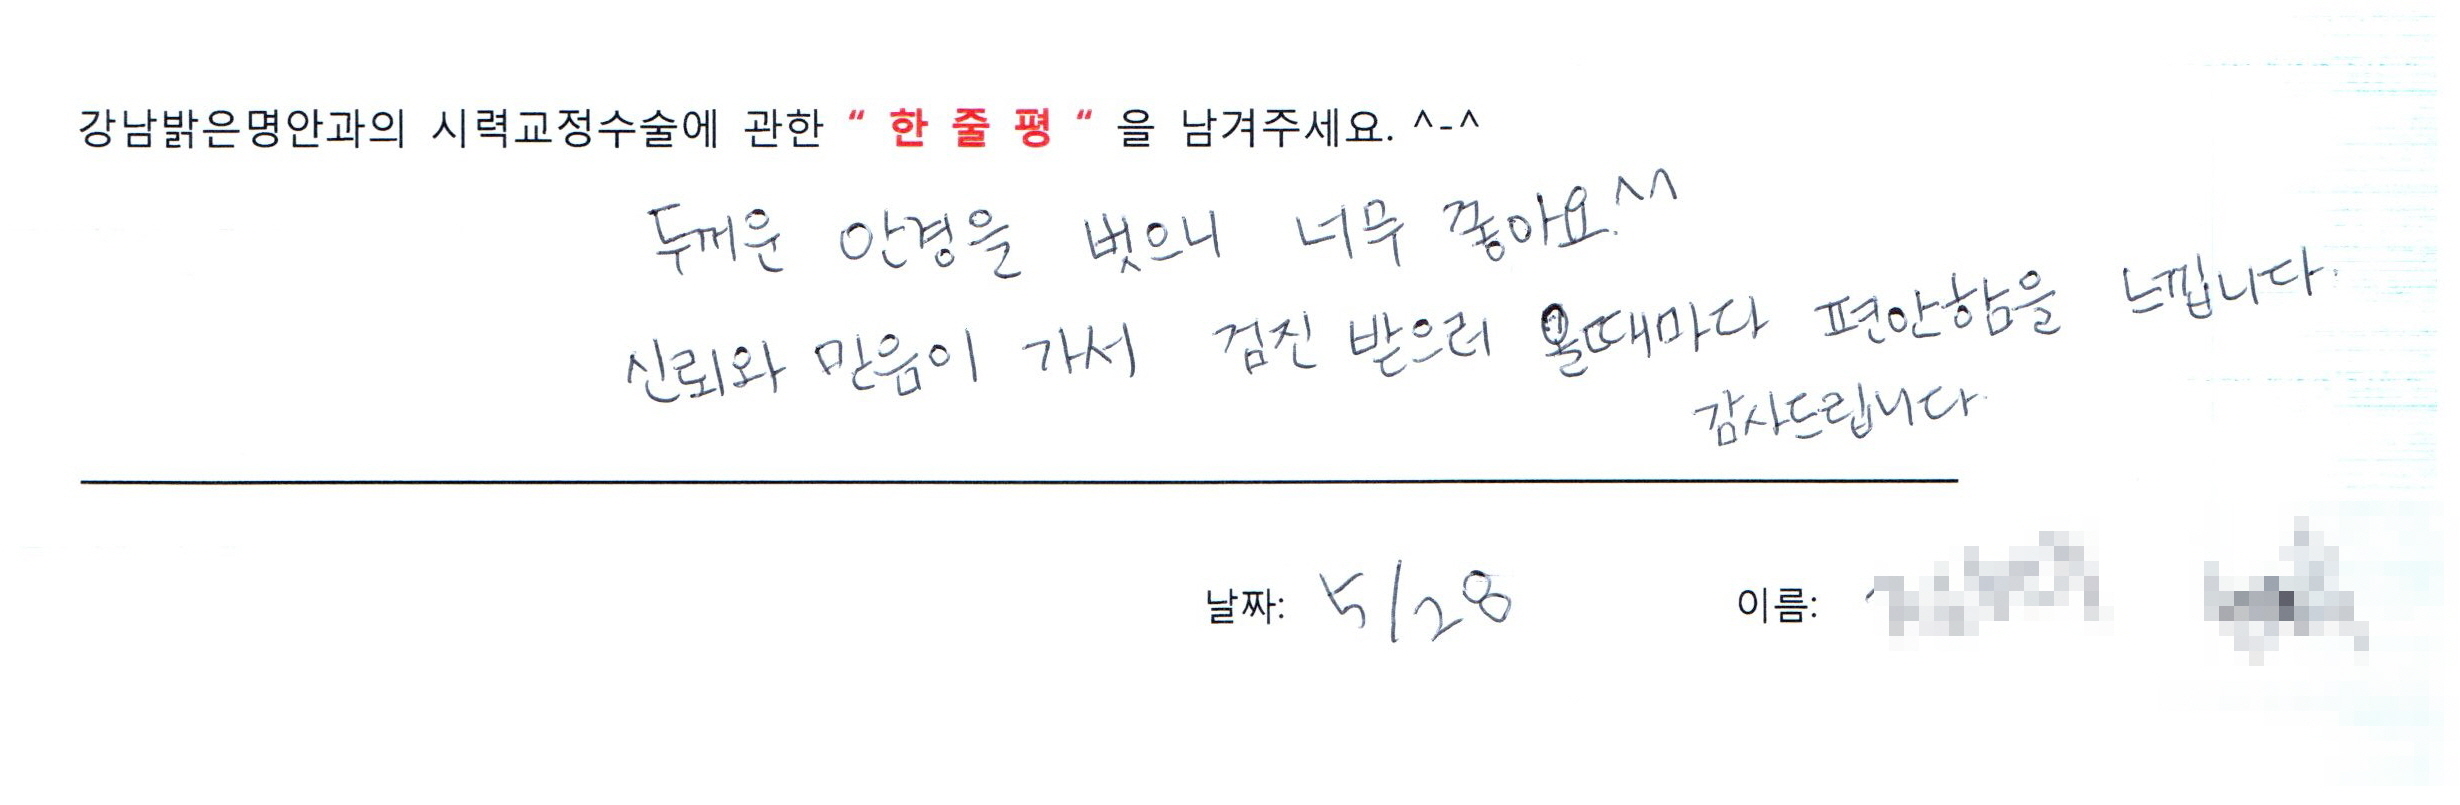 강남밝은명안과의 시력교정수술에 관한 “ 한 줄 평 “ 을 남겨주세요. ^-^
두꺼운 안경을 벗으니 너무 좋아요.^^
신뢰와 믿음이 가서 검진 받으러 올때마다 편안함을 느낍니다.
감사드립니다.
날짜: 5/28 이름: